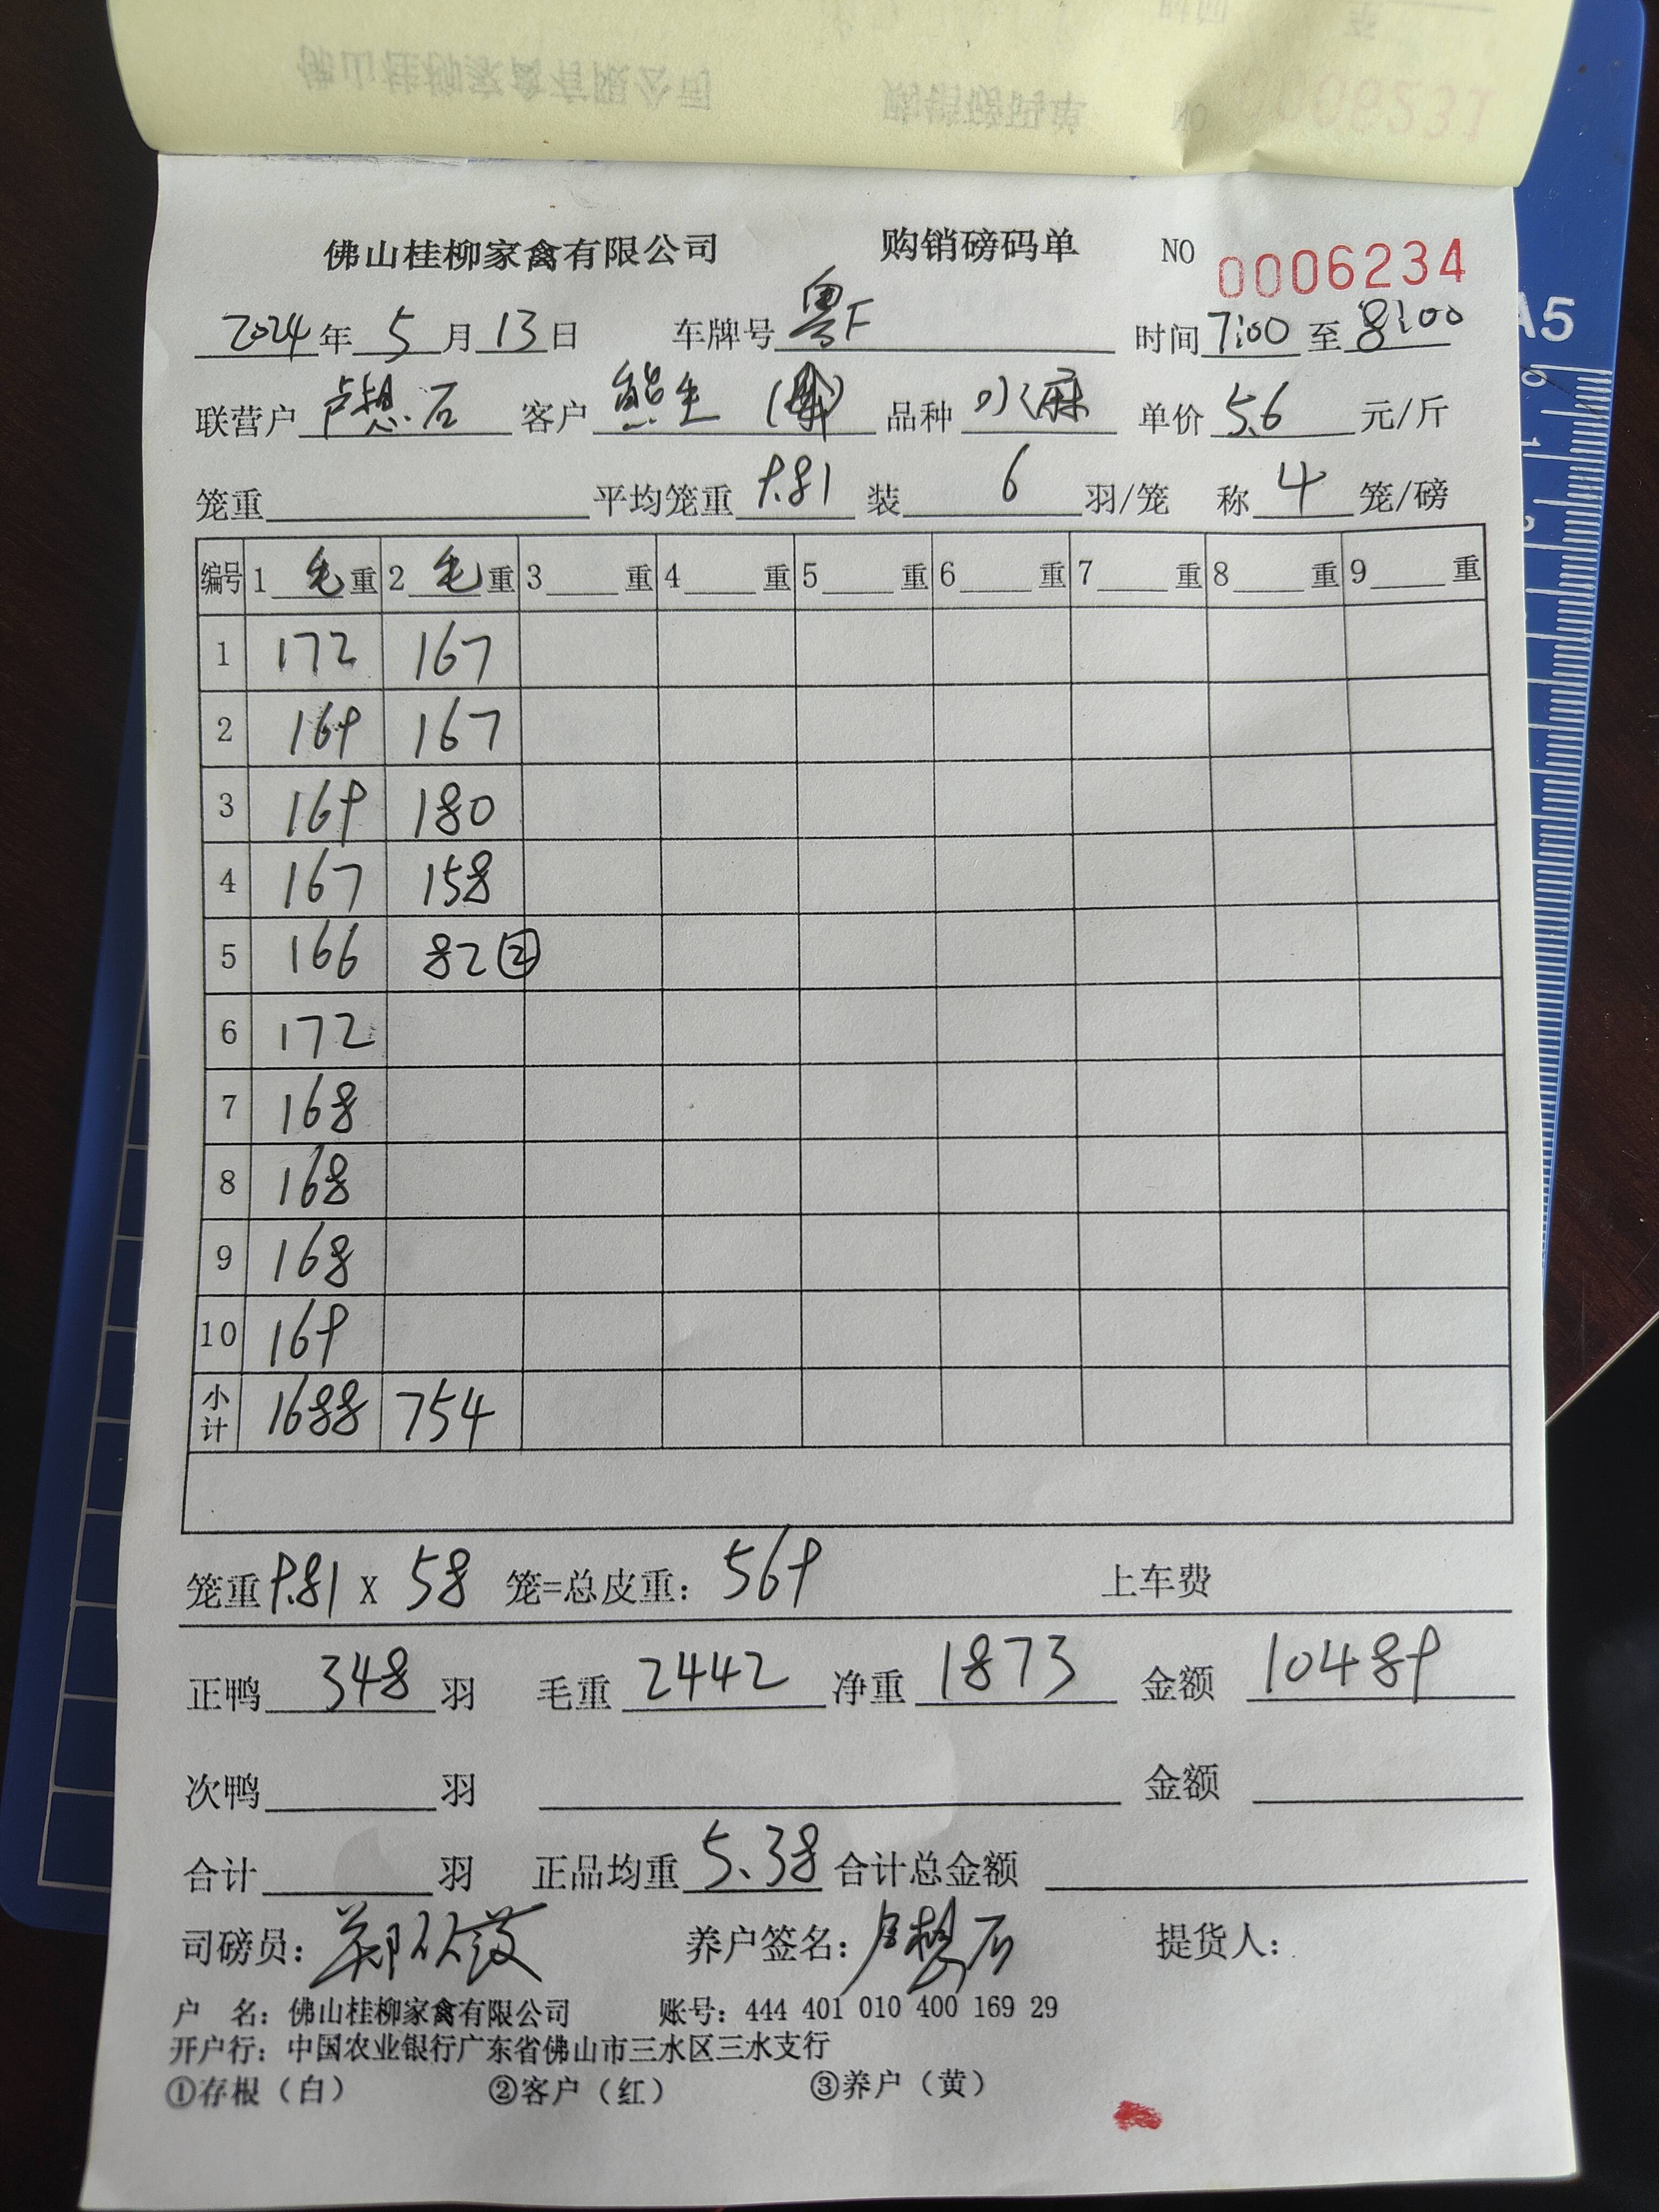 佛山桂柳家禽有限公司 购销磅码单 NO 0006234
2024年5月13日 车牌号 粤F 时间 7:00 至 8:00
联营户 卢想石 客户 熊生 品种 水麻 单价 5.6 元/斤
笼重 平均笼重 9.81 装 6 羽/笼 称 4 笼/磅
编号 1 毛 重 2 毛 重 3 重 4 重 5 重 6 重 7 重 8 重 9 重
1 172 167
2 169 167
3 169 180
4 167 158
5 166 82②
6 172
7 168
8 168
9 168
10 169
小计 1688 754
笼重 9.81 X 58 笼=总皮重: 569 上车费
正鸭 348 羽 毛重 2442 净重 1873 金额 10489
次鸭 羽 金额
合计 羽 正品均重 5.38 合计总金额
司磅员: 养户签名: 卢想石 提货人:
户 名: 佛山桂柳家禽有限公司 账号: 444 401 010 400 169 29
开户行: 中国农业银行广东省佛山市三水区三水支行
①存根（白） ②客户（红） ③养户（黄）
A5